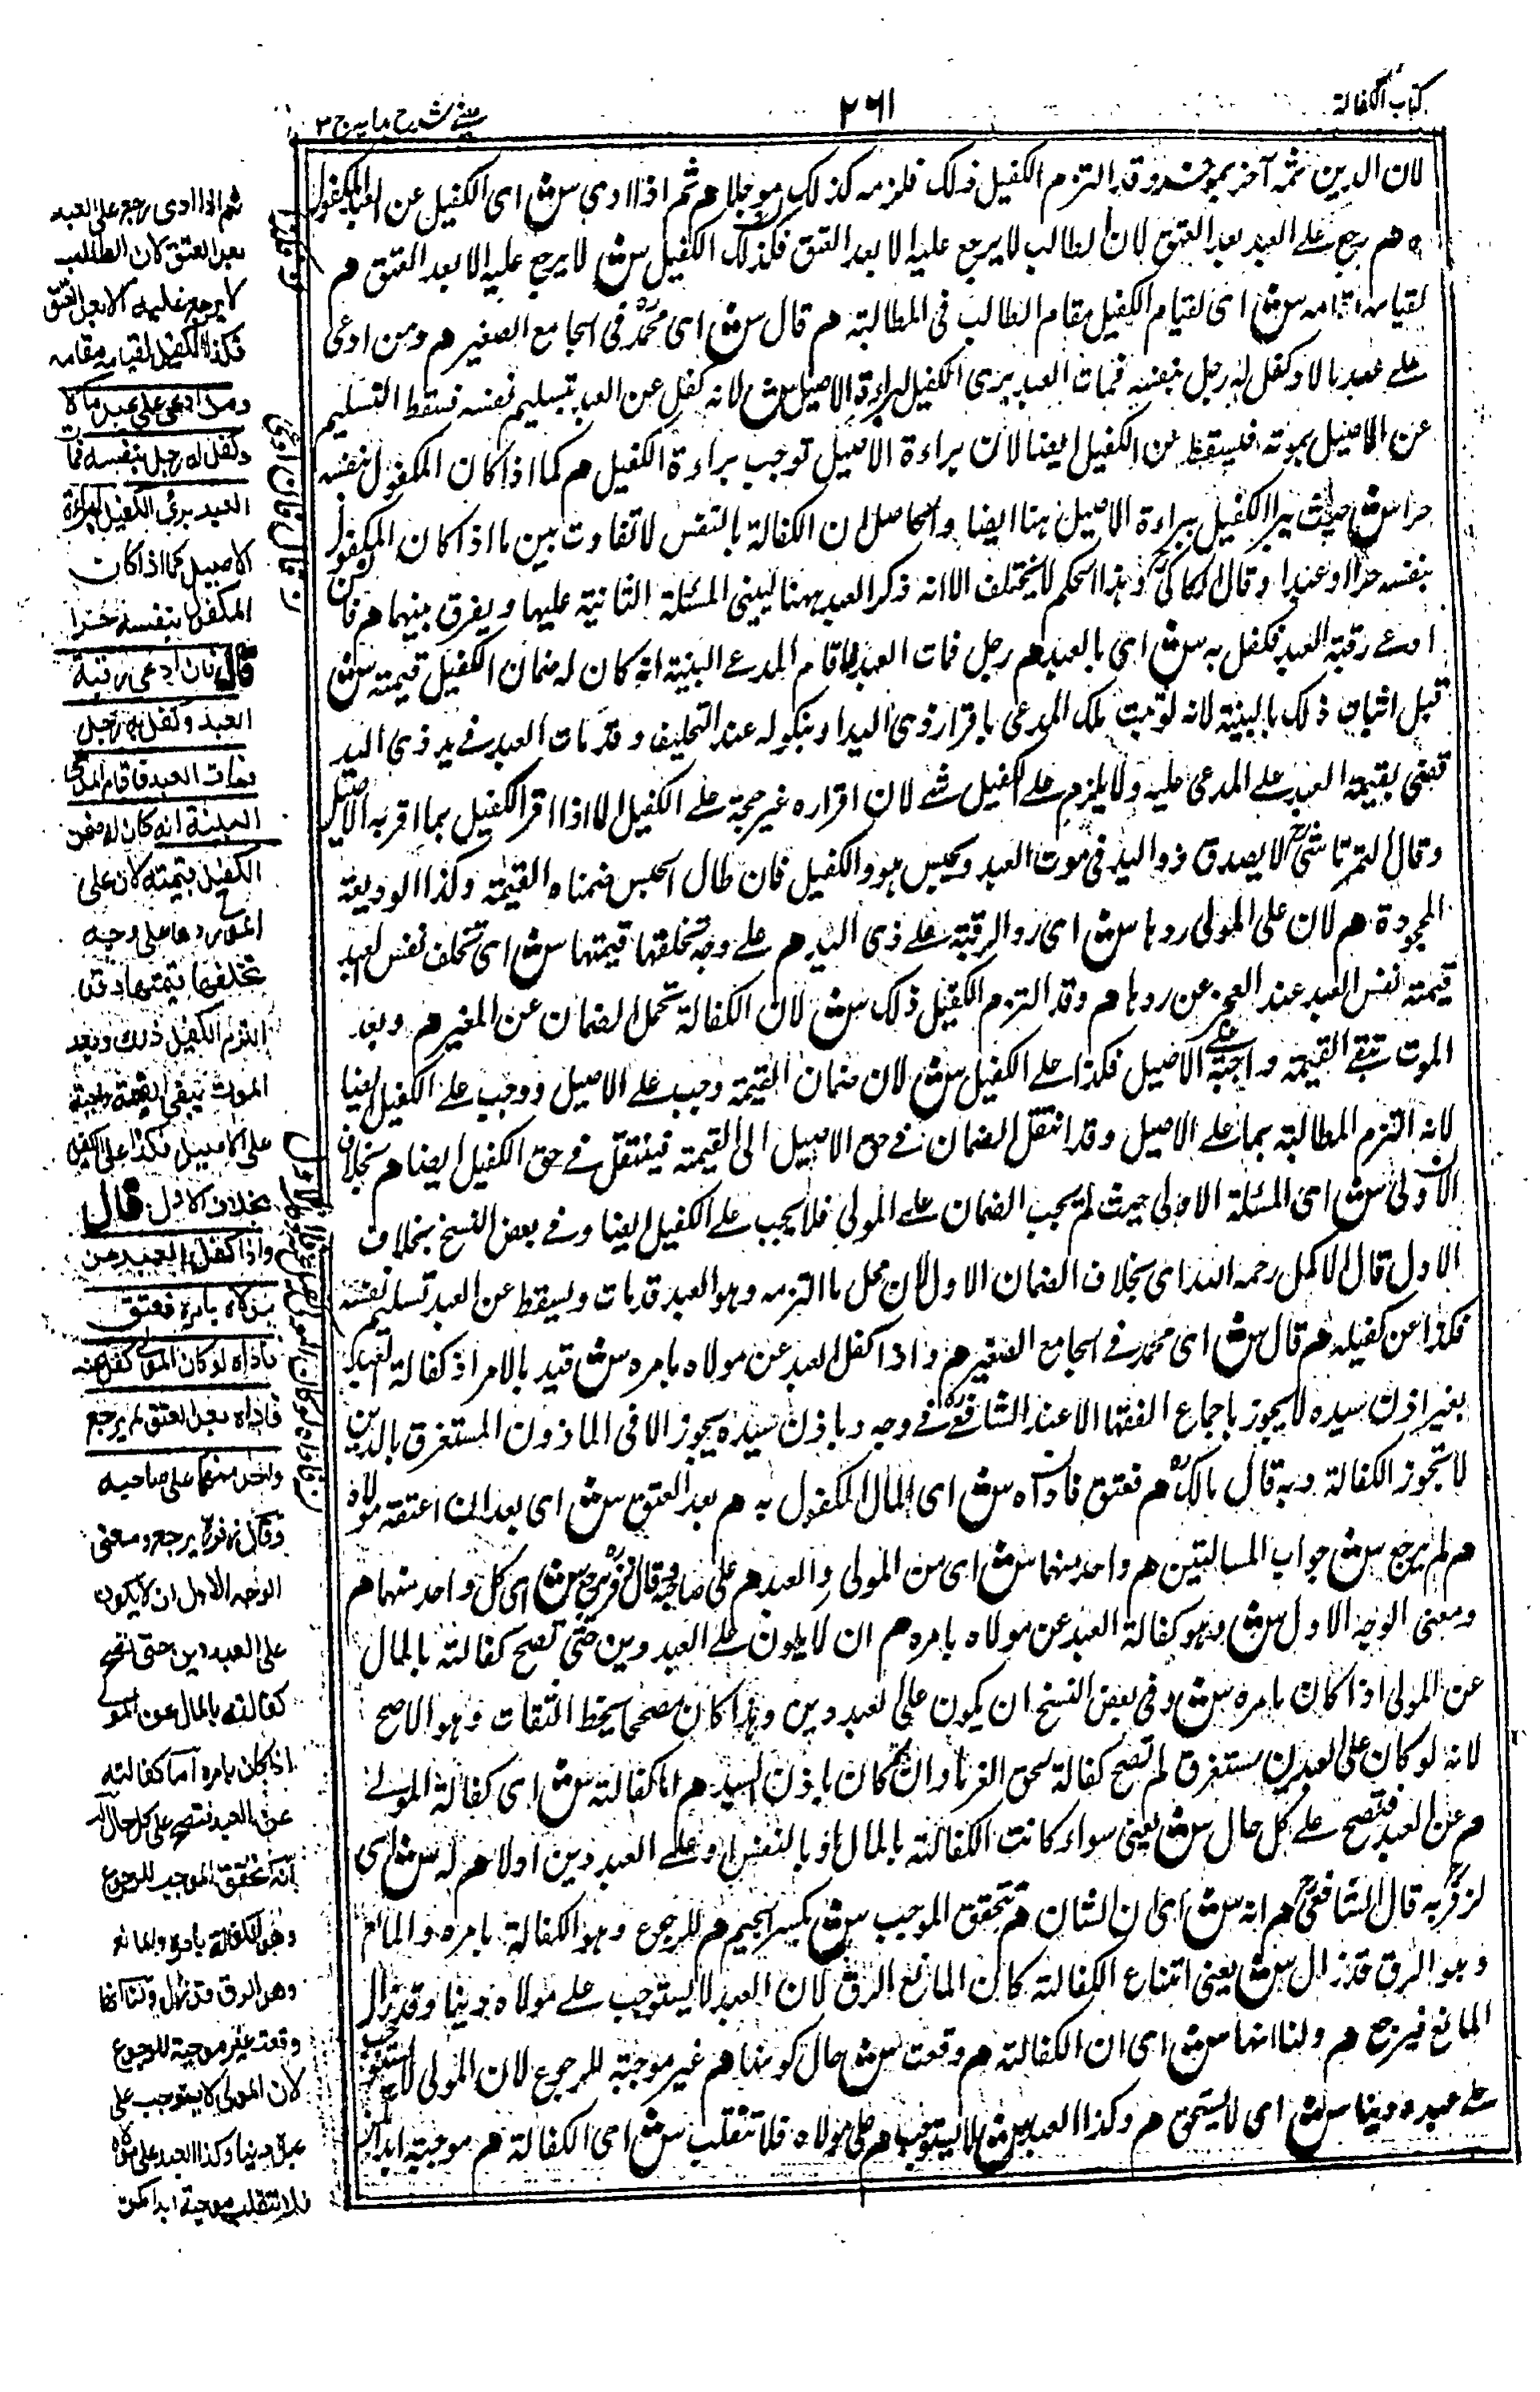 كتاب الكفالة
٢٦١
عينى شرح هدايه ج ٣
لان الدين ثمه آخر بمؤخر وقد التزم الكفيل ذلك فلزمه كذلك موجلا هم ثم اذا ادى ش اى الكفيل عن العبد المكفول
ه هم رجع على العبد بعد العتق لان الطالب لا يرجع عليه الا بعد العتق فكذلك الكفيل ش لا يرجع عليه الا بعد العتق هم
لقيامه مقامه ش اى لقيام الكفيل مقام الطالب فى المطالبة هم قال ش اى محمدؒ فى الجامع الصغير هم ومن ادعى
على عبد مالا وكفل له رجل بنفسه فمات العبد برى الكفيل لبراءة الاصيل ش لانه كفل عن العبد بتسليم نفسه فسقط التسليم
عن الاصيل بموته فيسقط عن الكفيل ايضا لان براءة الاصيل توجب براءة الكفيل هم كما اذا كان المكفول بنفسه
حرا ش حيث يبرا الكفيل ببراءة الاصيل هنا ايضا والحاصل ان الكفالة بالنفس لا تفاوت بين ما اذا كان المكفول
بنفسه حرا او عبدا وقال الكاكىؒ وهذا الحكم لا يختلف الا انه ذكر العبد ههنا ليبنى المسئلة الثانية عليها ويفرق بينهما هم فان
ادعى رقبة العبد فكفل به ش اى بالعبد هم رجل فمات العبد فاقام المدعى البينة انه كان له ضمان الكفيل قيمته ش
قبل اثبات ذلك بالبينة لانه لو ثبت ملك المدعى باقرار ذى اليد او بنكوله عند التحليف وقد مات العبد فى يد ذى اليد
قضى بقيمة العبد على المدعى عليه ولا يلزم على الكفيل شئ لان اقراره غير حجة على الكفيل الا اذا اقر الكفيل بما اقر به الاصيل
وقال التمرتاشىؒ لا يصدق ذو اليد فى موت العبد ويحبس هو والكفيل فان طال الحبس ضمناه القيمة وكذا الوديعة
المجحودة هم لان على المولى ردها ش اى رد الرقبة على ذى اليد هم على وجه تخلفها قيمتها ش اى تخلف نفس العبد
قيمته نفس العبد عند العجز عن ردها هم وقد التزم الكفيل ذلك ش لان الكفالة تحمل الضمان عن الغير هم وبعد
الموت تبقى القيمة واجبة على الاصيل فكذا على الكفيل ش لان ضمان القيمة وجب على الاصيل ووجب على الكفيل ايضا
لانه التزم المطالبة بما على الاصيل وقد انتقل الضمان فى حق الاصيل الى القيمة فينتقل فى حق الكفيل ايضا هم بخلاف
الاولى ش اى المسئلة الاولى حيث لم يجب الضمان على المولى فلا يجب على الكفيل ايضا وفى بعض النسخ بخلاف
الاول قال الاكمل رحمه الله اى بخلاف الضمان الاول لان محل ما التزمه وهو العبد قد مات وسقط عن العبد تسليم نفسه
فكذا عن كفيله هم قال ش اى محمد فى الجامع الصغير هم واذا كفل العبد عن مولاه بامره ش قيد بالامر اذ كفالة العبد
بغير اذن سيده لا يجوز باجماع الفقهاء الا عند الشافعىؒ فى وجه وباذن سيده يجوز الا فى الماذون المستغرق بالدين
لا تجوز الكفالة وبه قال مالكؒ هم فعتق فاداه ش اى المال المكفول به هم بعد العتق ش اى بعد ان اعتقه مولاه
هم لم يرجع ش جواب المسالتين هم واحد منهما ش اى من المولى والعبد هم على صاحبه وقال زفرؒ يرجع ش اى كل واحد منهما هم
ومعنى الوجه الاول ش وهو كفالة العبد عن مولاه بامره هم ان لا يكون على العبد دين حتى تصح كفالته بالمال
عن المولى اذا كان بامره ش وفى بعض النسخ ان يكون على العبد دين وهذا كان مصححا بخط الثقات وهو الاصح
لانه لو كان على العبد دين مستغرق لم تصح كفالة لحق الغرماء وان كان باذن السيد هم اما كفالته ش اى كفالة المولى
هم عن العبد فتصح على كل حال ش يعنى سواء كانت الكفالة بالمال او بالنفس وعلى العبد دين اولا هم له ش اى
لزفرؒ وبه قال الشافعىؒ هم انه ش اى ان الشان هم تحقق الموجب ش بكسر الجيم هم للرجوع وهو الكفالة بامره والمانع
وهو الرق قد زال ش يعنى امتناع الكفالة كان المانع الرق لان العبد لا يستوجب على مولاه دينا وقد زال
المانع فيرجع هم ولنا انها ش اى ان الكفالة هم وقعت ش حال كونها هم غير موجبة للرجوع لان المولى لا يستوجب
على عبده دينا ش اى لا يستحق هم وكذا العبد ش لا يستوجب هم على مولاه فلا تنقلب ش اى الكفالة هم موجبة ابدا
ثم اذا ادى رجع على العبد
بعد العتق لان الطالب
لا يرجع عليه الا بعد العتق
فكذا الكفيل لقيامه مقامه
ومن ادعى على عبد مالا
وكفل له رجل بنفسه فمات
العبد برئ الكفيل لبراءة
الاصيل كما اذا كان
المكفول بنفسه حرا
قال فان ادعى رقبة
العبد وكفل به رجل
فمات العبد فاقام المدعى
البينة انه كان له ضمن
الكفيل قيمته لان على
المولى ردها على وجه
تخلفها قيمتها وقد
التزم الكفيل ذلك وبعد
الموت تبقى القيمة واجبة
على الاصيل فكذا على الكفيل
بخلاف الاول قال
واذا كفل العبد عن
مولاه بامره فعتق
فاداه او كان المولى كفل عنه
فاداه بعد العتق لم يرجع
واحد منهما على صاحبه
وقال زفرؒ يرجع ومعنى
الوجه الاول ان لا يكون
على العبد دين حتى تصح
كفالته بالمال عن المولى
اذا كان بامره اما كفالته
عن العبد فتصح على كل حال له
انه تحقق الموجب للرجوع
وهو الكفالة بامره والمانع
وهو الرق قد زال ولنا انها
وقعت غير موجبة للرجوع
لان المولى لا يستوجب على
عبده دينا وكذا العبد على مولاه
فلا تنقلب موجبة ابدا كمن